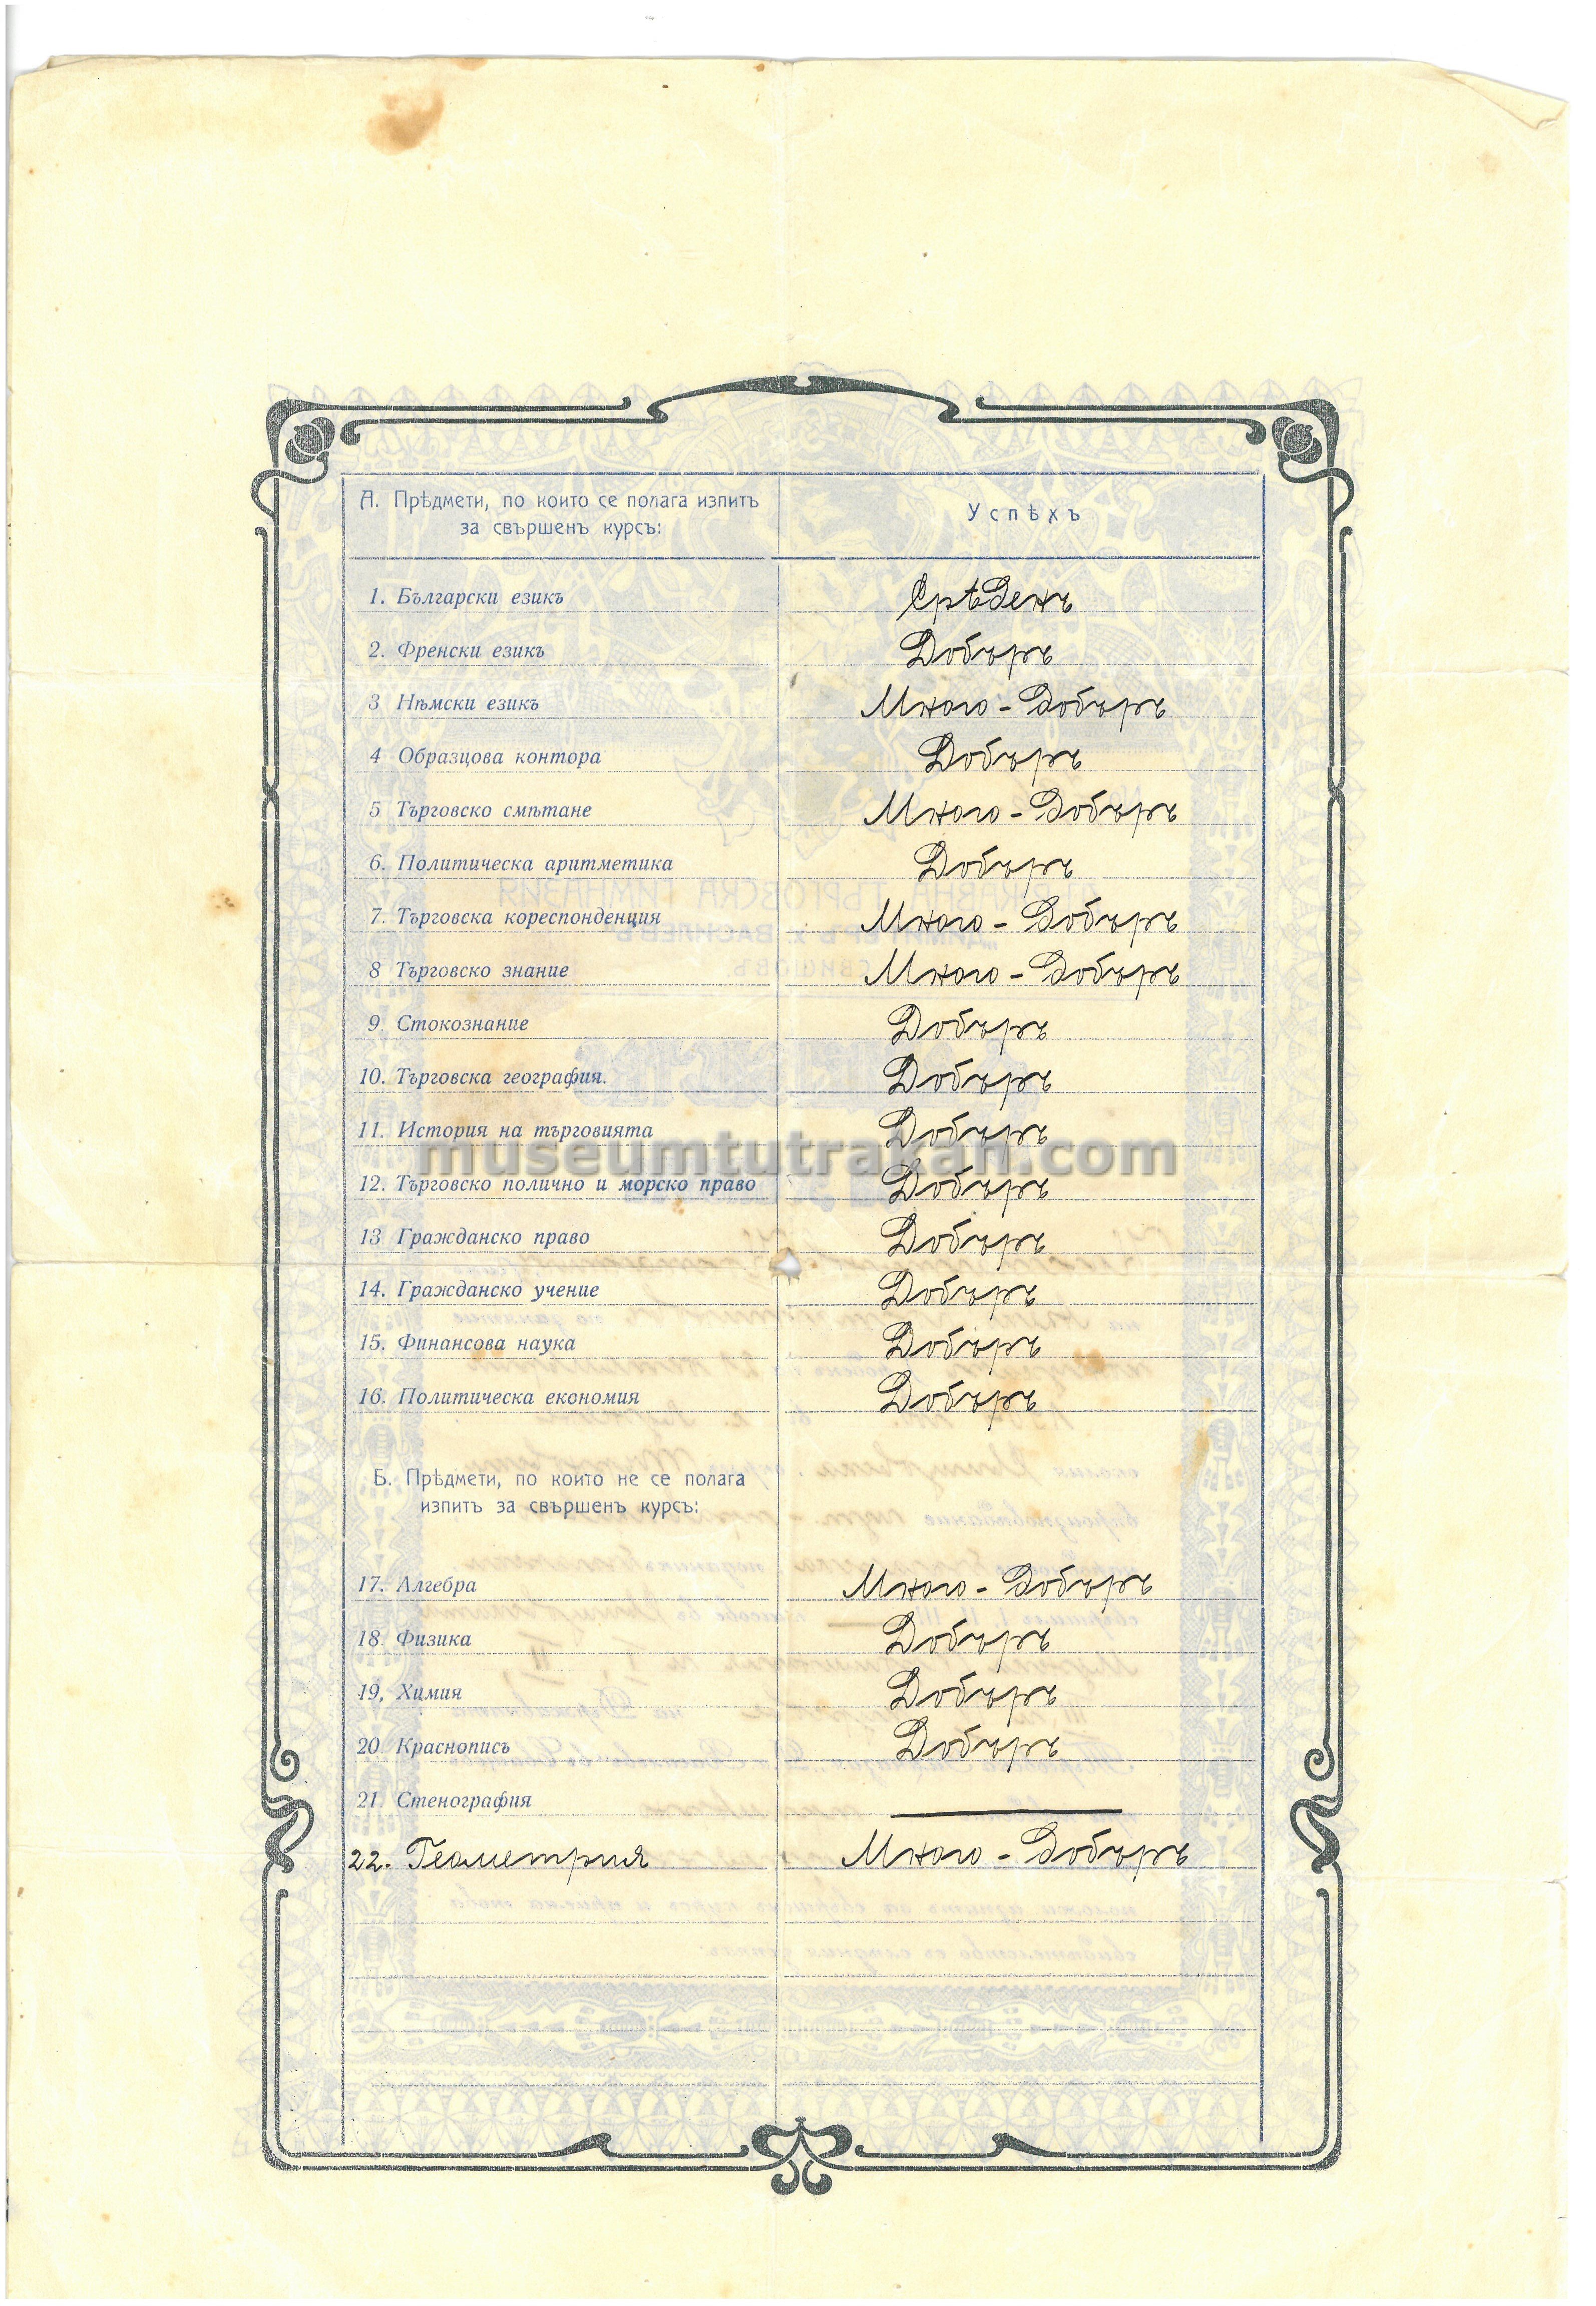 А. Прѣдмети, по които се полага изпитъ
за свършенъ курсъ:
Успѣхъ
1. Български езикъ Срѣденъ
2. Френски езикъ Добъръ
3 Нѣмски езикъ Много - Добъръ
4 Образцова контора Добъръ
5 Търговско смѣтане Много - Добъръ
6. Политическа аритметика Добъръ
7. Търговска кореспонденция Много - Добъръ
8 Търговско знание Много - Добъръ
9. Стокознание Добъръ
10. Търговска география. Добъръ
11. История на търговията Добъръ
museumtutrakan.com
12. Търговско полично и морско право Добъръ
13 Гражданско право Добъръ
14. Гражданско учение Добъръ
15. Финансова наука Добъръ
16. Политическа економия Добъръ
Б. Прѣдмети, по които не се полага
изпитъ за свършенъ курсъ:
17. Алгебра Много - Добъръ
18. Физика Добъръ
19, Химия Добъръ
20. Краснописъ Добъръ
21. Стенография
22. Геометрия Много - Добъръ